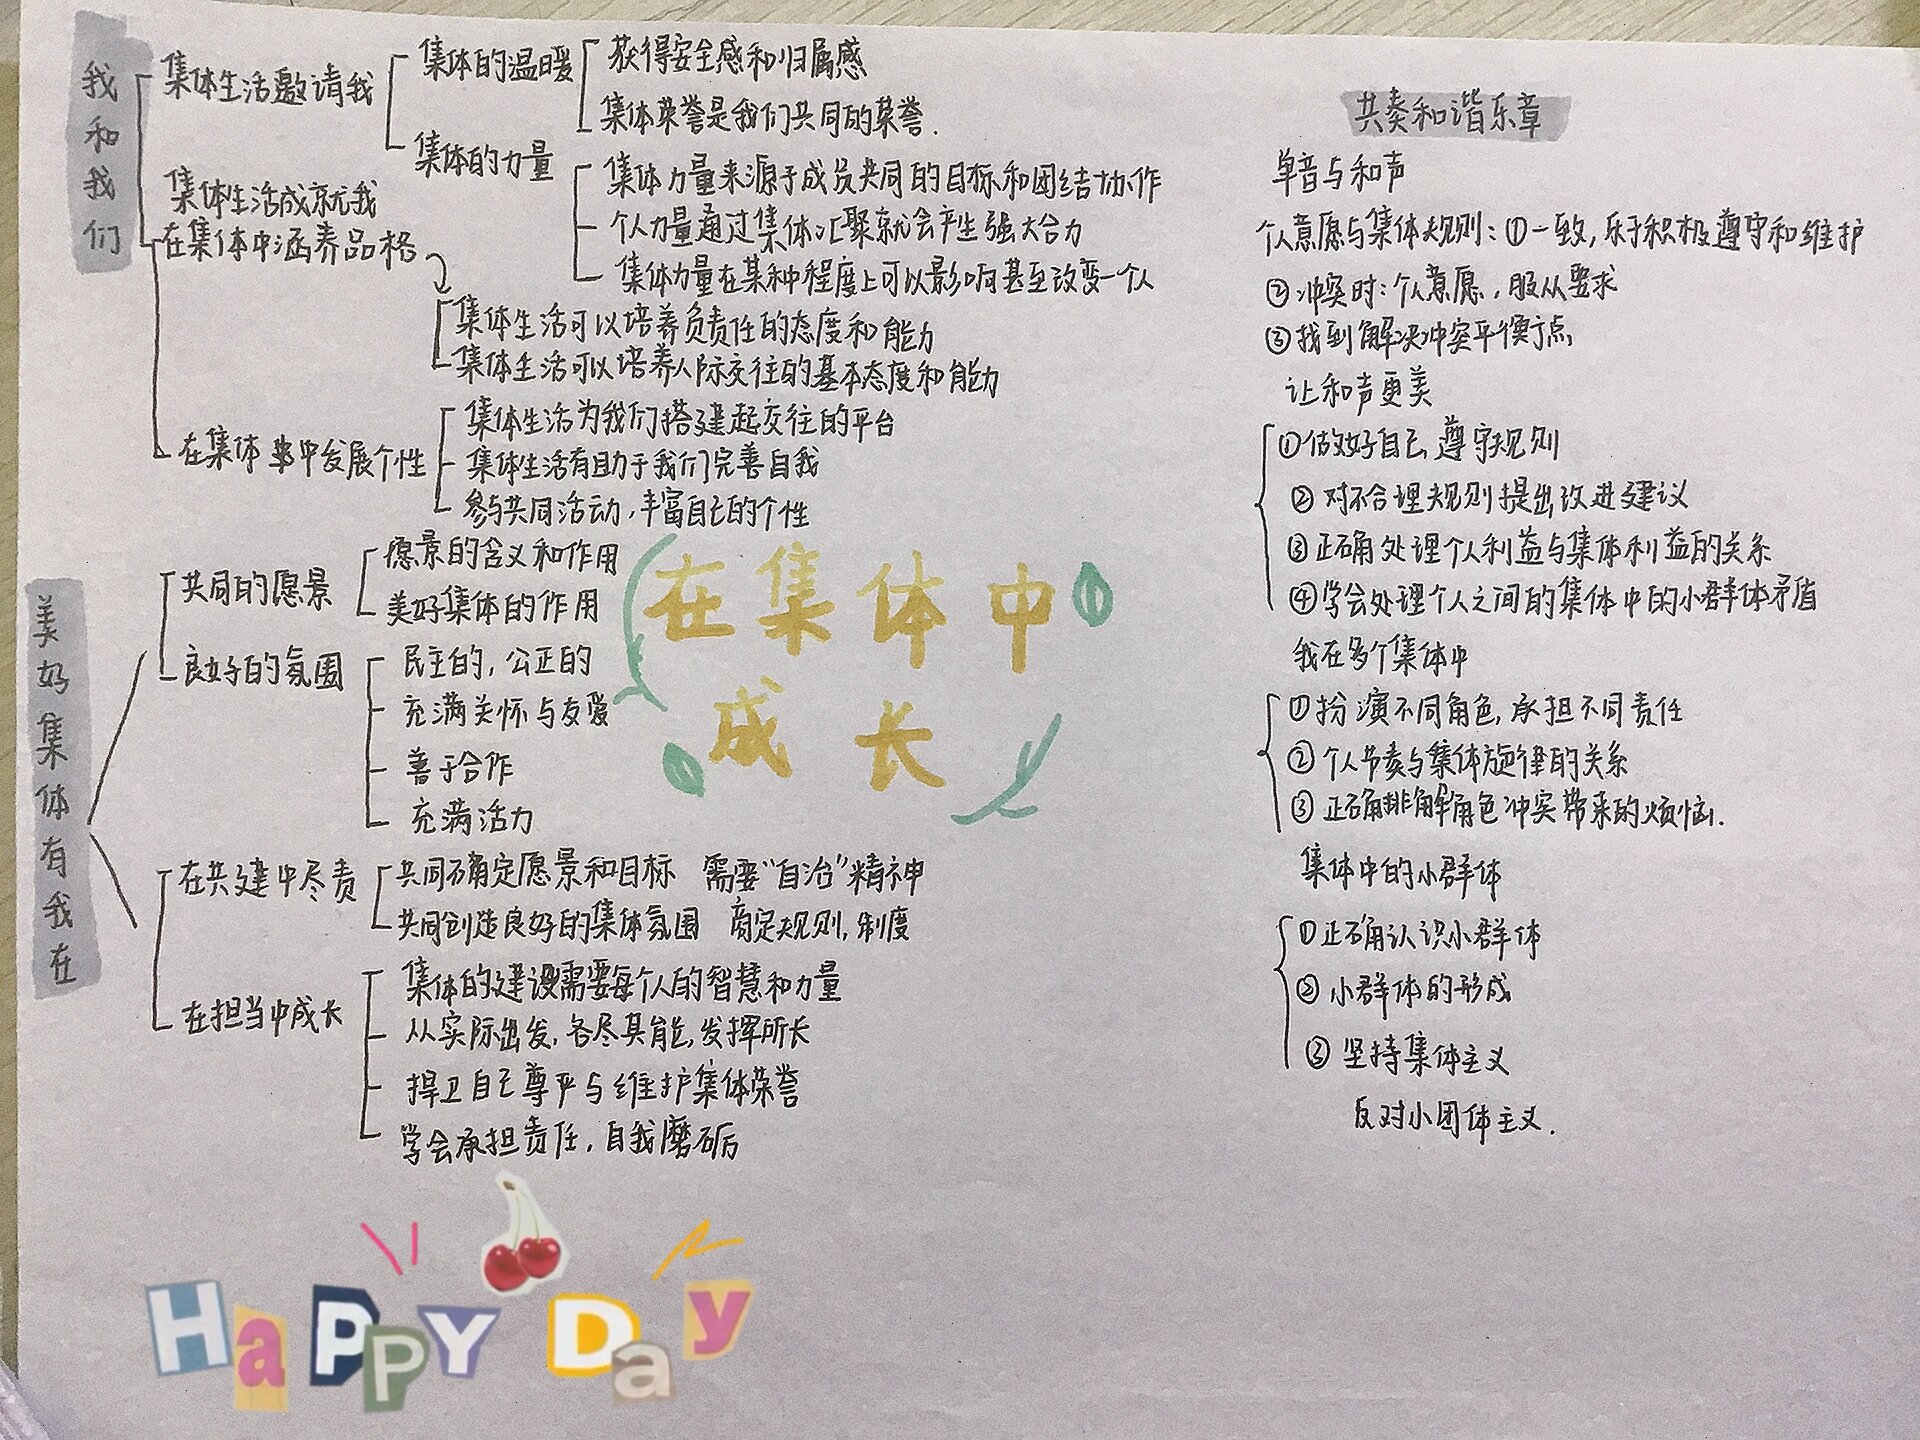 我和我们
集体生活邀请我
集体的温暖
获得安全感和归属感
集体荣誉是我们共同的荣誉.
集体的力量
集体力量来源于成员共同的目标和团结协作
个人力量通过集体汇聚就会产生强大合力
集体力量在某种程度上可以影响甚至改变一个人
集体生活成就我
在集体中涵养品格
集体生活可以培养负责任的态度和能力
集体生活可以培养人际交往的基本态度和能力
在集体中发展个性
集体生活为我们搭建起交往的平台
集体生活有助于我们完善自我
参与共同活动,丰富自己的个性
在集体中
成长
美好集体有我在
共同的愿景
愿景的含义和作用
美好集体的作用
良好的氛围
民主的,公正的
充满关怀与友爱
善于合作
充满活力
在共建中尽责
共同确定愿景和目标 需要“自治”精神
共同创造良好的集体氛围 商定规则,制度
在担当中成长
集体的建设需要每个人的智慧和力量
从实际出发,各尽其能,发挥所长
捍卫自己尊平与维护集体荣誉
学会承担责任,自我磨砺
共奏和谐乐章
单音与和声
个人意愿与集体规则:①一致,乐于积极遵守和维护
②冲突时:个人意愿,服从要求
③找到解决冲突平衡点
让和声更美
①做好自己,遵守规则
②对不合理规则提出改进建议
③正确处理个人利益与集体利益的关系
④学会处理个人之间的集体中的小群体矛盾
我在多个集体中
①扮演不同角色,承担不同责任
②个人节奏与集体旋律的关系
③正确排解角色冲突带来的烦恼.
集体中的小群体
①正确认识小群体
②小群体的形成
③坚持集体主义
反对小团体主义.
HaPPY Day